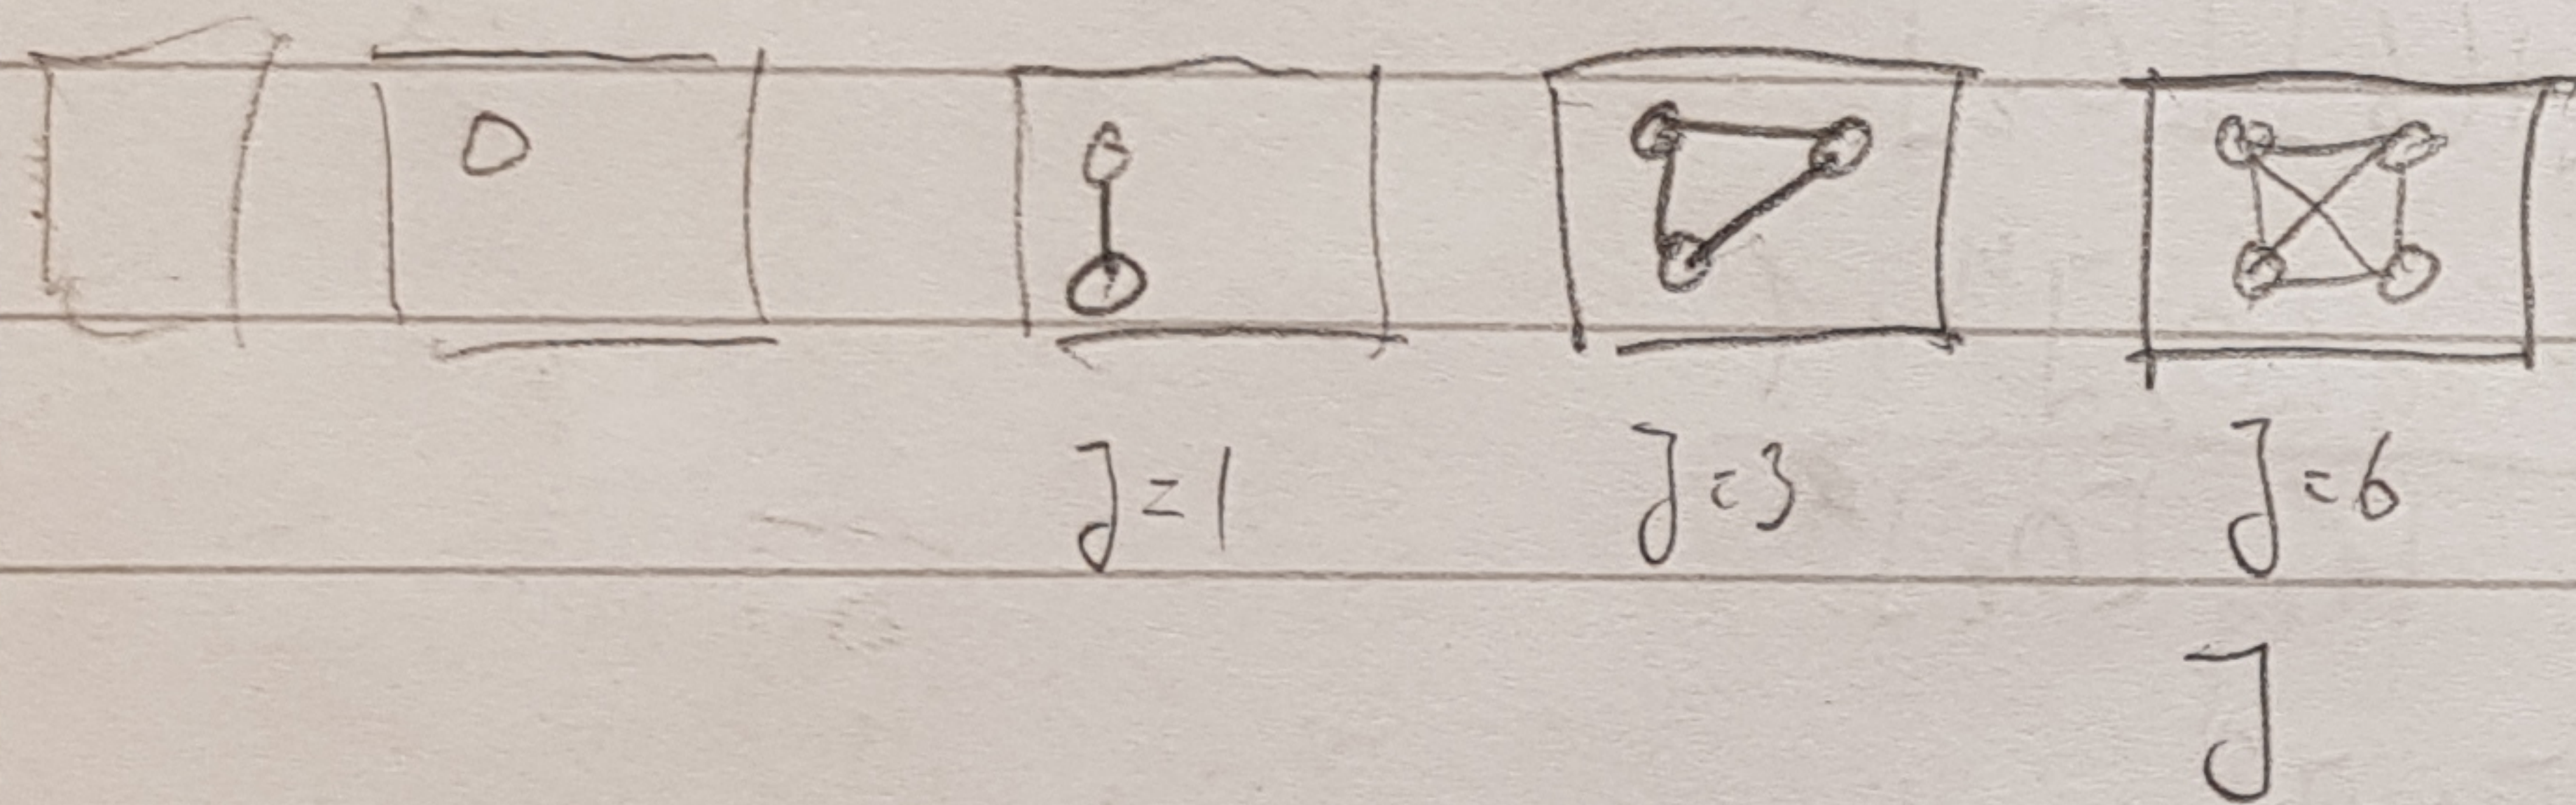 J=1 J=3 J=6
J